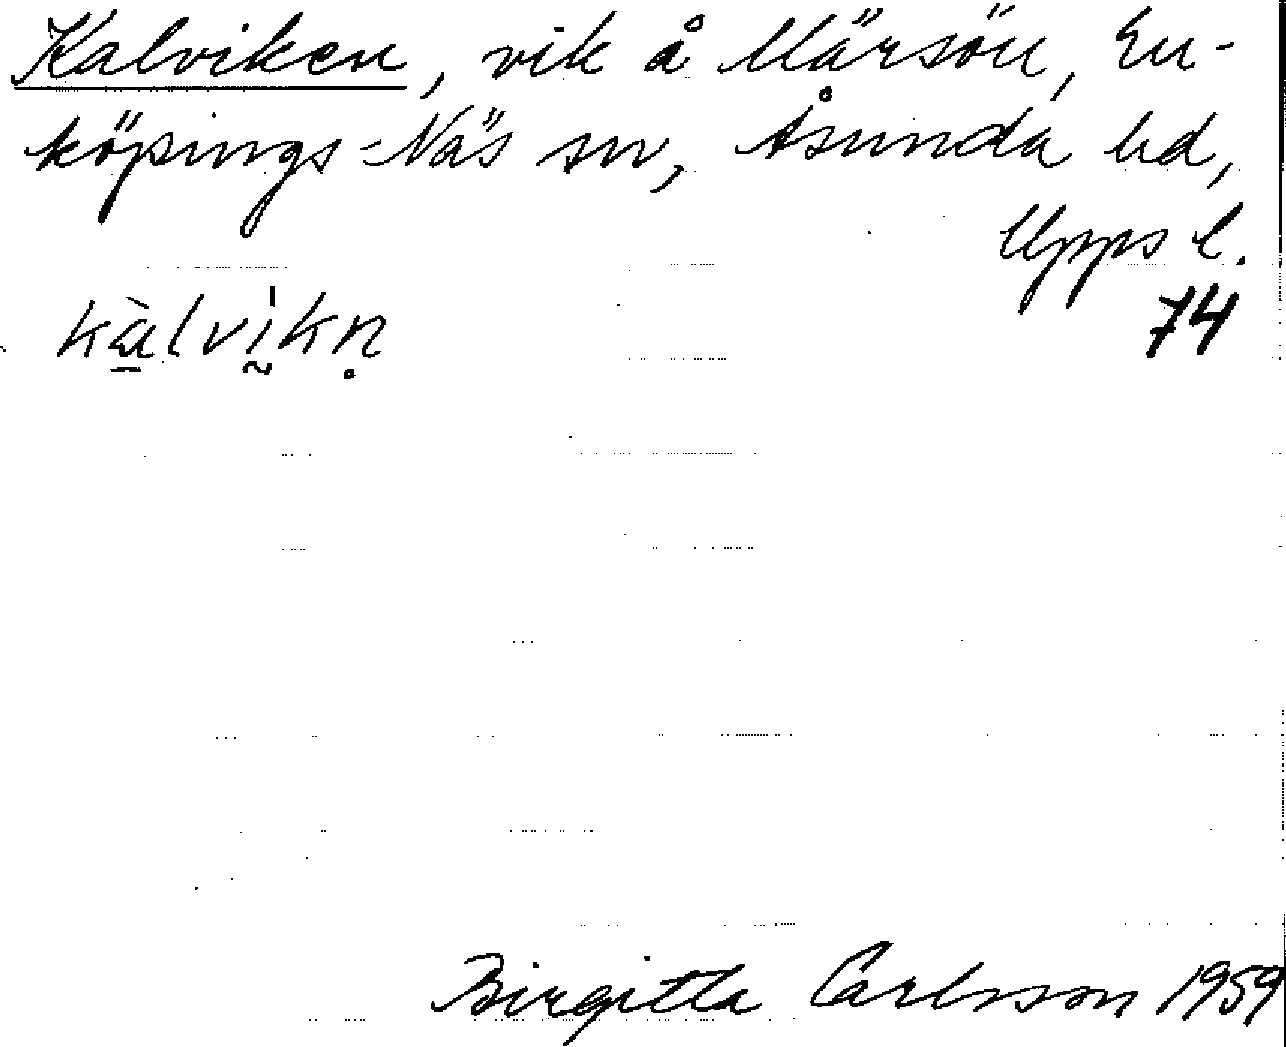 Kalviken, vik å Märsön, En-
köpings-Näs sn, Åsunda hd,
Upps l.
kàlvikn̥ 74
Birgitta Carlsson 1959